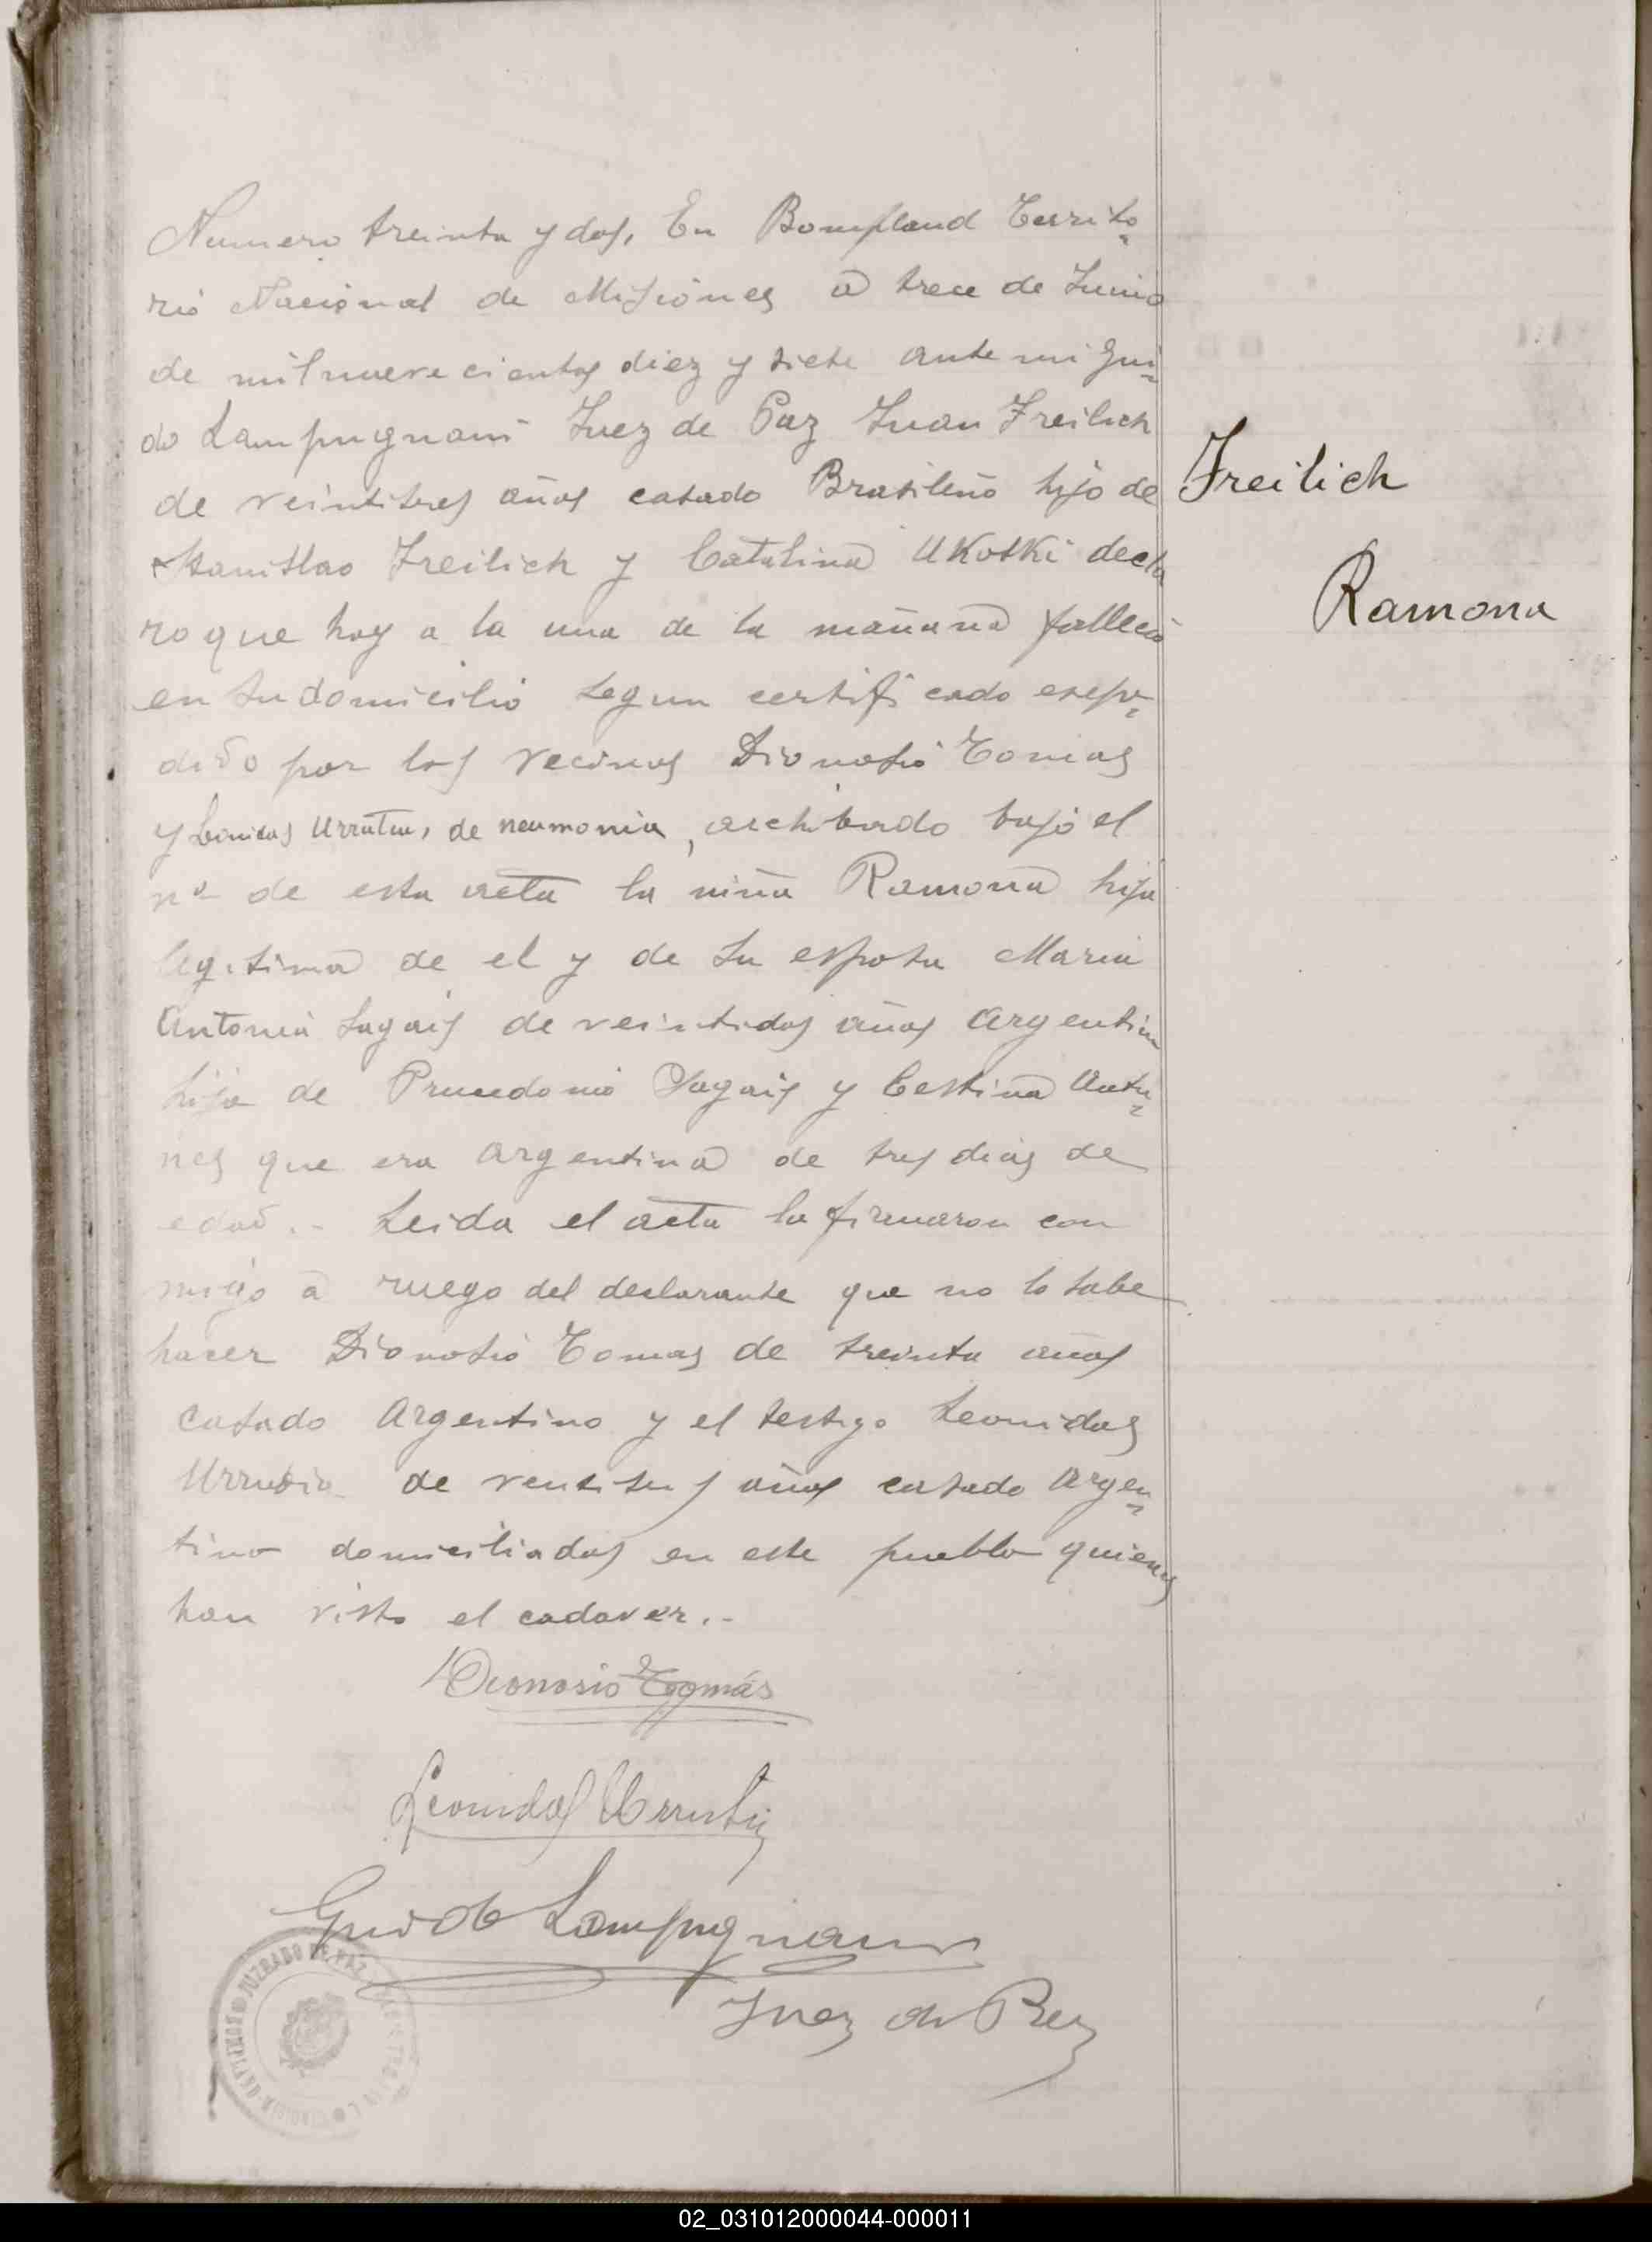 Numero treinta y dos, En Bompland Territo-
rio Nacional de Misiones a trece de Junio
de mil nueve cientos diez y siete ante mi Gui-
do Lampugnani Juez de Paz Juan Freilich
de veintitres años casado Brasileño hijo de
Stanislao Freilich y Catalina Ukoski decla
ro que hoy a la una de la mañana fallecio
en su domicilio segun certificado espe-
dido por los vecinos Dionosio Tomas
y Leonidas Urrutia, de neumonia, archibado bajo el
nº de esta acta la niña Ramona hija
legitima de el y de su esposa Maria
Antonia Sagais de veintidos años Argentina
hija de Prucedonio Sagais y Cestina Antu-
nes que era Argentina de tres dias de
edad.- Leida el acta la firmaron con
migo a ruego del declarante que no lo sabe
hacer Dionosio Tomas de treinta años
casado Argentino y el testigo Leonidas
Urrutia de años casado Argen-
tino domiciliados en este pueblo quienes
han visto el cadaver.-
Freilich
Ramona
Dionosio Tomás
Leonidas Urrutia
Guido Lampugnani
Juez de Paz
JUZGADO DE PAZ
BOMPLAND
02_031012000044-000011